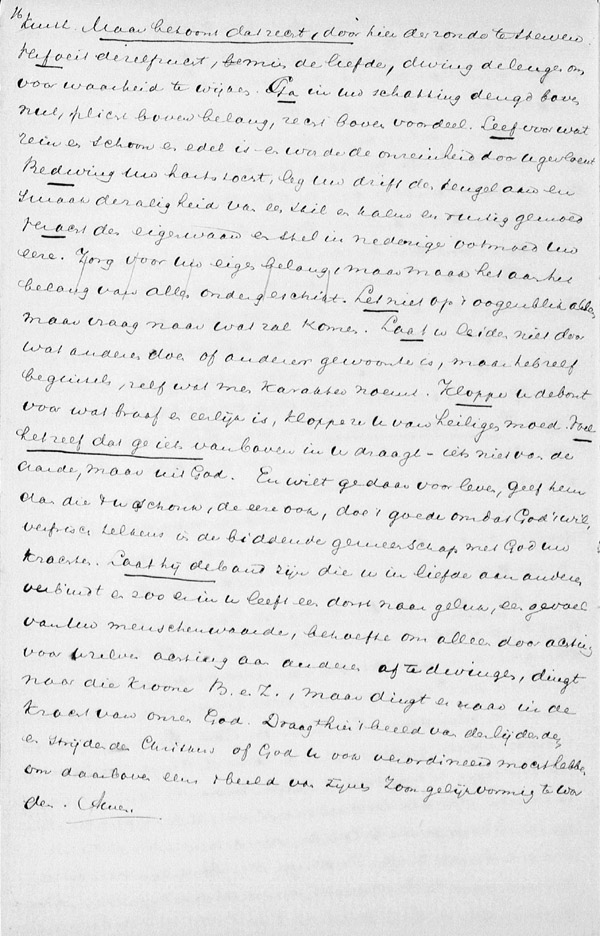 16
kunt. Maar betoont dat recht, door hier de zonde te sterven.
Verfoeit de zelfzucht, bemin de liefde, dwing de leugen om
voor waarheid te wijken. Sta in uw schatting deugd boven
nut, plicht boven belang, recht boven voordeel. Leef voor wat
rein en schoon en edel is en worde de onreinheid door u gevloekt
Bedwing uw hartstocht, leg uw drift den teugel aan en
smaak de zaligheid van een stil en kalm en rustig gemoed
Veracht den eigenwaan en stel in nederige ootmoed uw
eere. Zorg voor uw eigen belang, maar maak het aan het
belang van allen ondergeschikt. Let niet op 't oogenblik alleen
maar vraag naar wat zal komen. Laat u leiden niet door
wat anderen doen of anderer gewoonte is, maar heb zelf
beginsel, zelf wat men karakter noemt. Kloppe u de borst
voor wat braaf en eerlijk is, kloppe ze u van heiligen moed. Voel
het zelf dat ge iets van boven in u draagt - iets niet van de
aarde, maar uit God. En wilt ge daarvoor leven, geef hem
dan die 't u schonk, de eere ook, doe 't goede omdat God 't wil,
verfrisch telkens in de biddende gemeenschap met God uw
krachten. Laat hij de band zijn die u in liefde aan anderen
verbindt en zoo er in u leeft een dorst naar geluk, een gevoel
van uw menschenwaarde, behoefte om alleen door achting
voor uzelven achting aan anderen af te dwingen, dingt
naar die kroone B. e. Z., maar dingt er naar in de
kracht van onzen God. Draagt hier 't beeld van den lijdenden
en strijdenden Christus of God u ook verordineerd mocht hebben
om daarboven eens 't beeld van Zijnen Zoon gelijkvormig te wor
den. Amen.